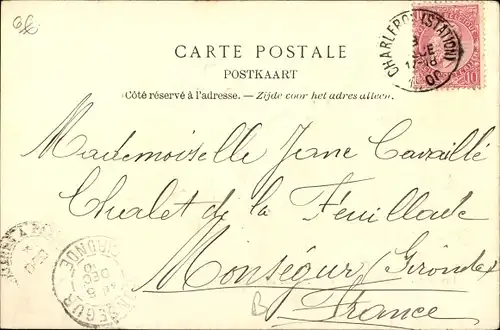 CARTE POSTALE
POSTKAART
Côté réservé à l'adresse. – Zijde voor het adres alleen.
CHARLEROI (STATION)
10
Mademoiselle Jane Cavaillé
Chalet de la Feuillade
Monségur (Gironde)
France
MONSÉGUR
GIRONDE
B